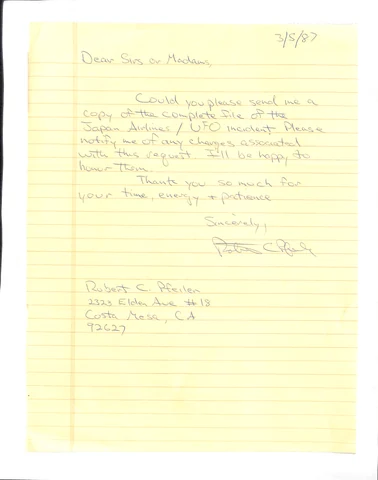 3/5/87
Dear Sirs or Madams,
Could you please send me a
copy of the complete file of the
Japan Airlines / UFO incident. Please
notify me of any charges associated
with this request. I'll be happy to
honor them.
Thank you so much for
your time, energy + patience
Sincerely,
Robert C.
2323 Elden Ave #18
Costa Mesa, CA
92627